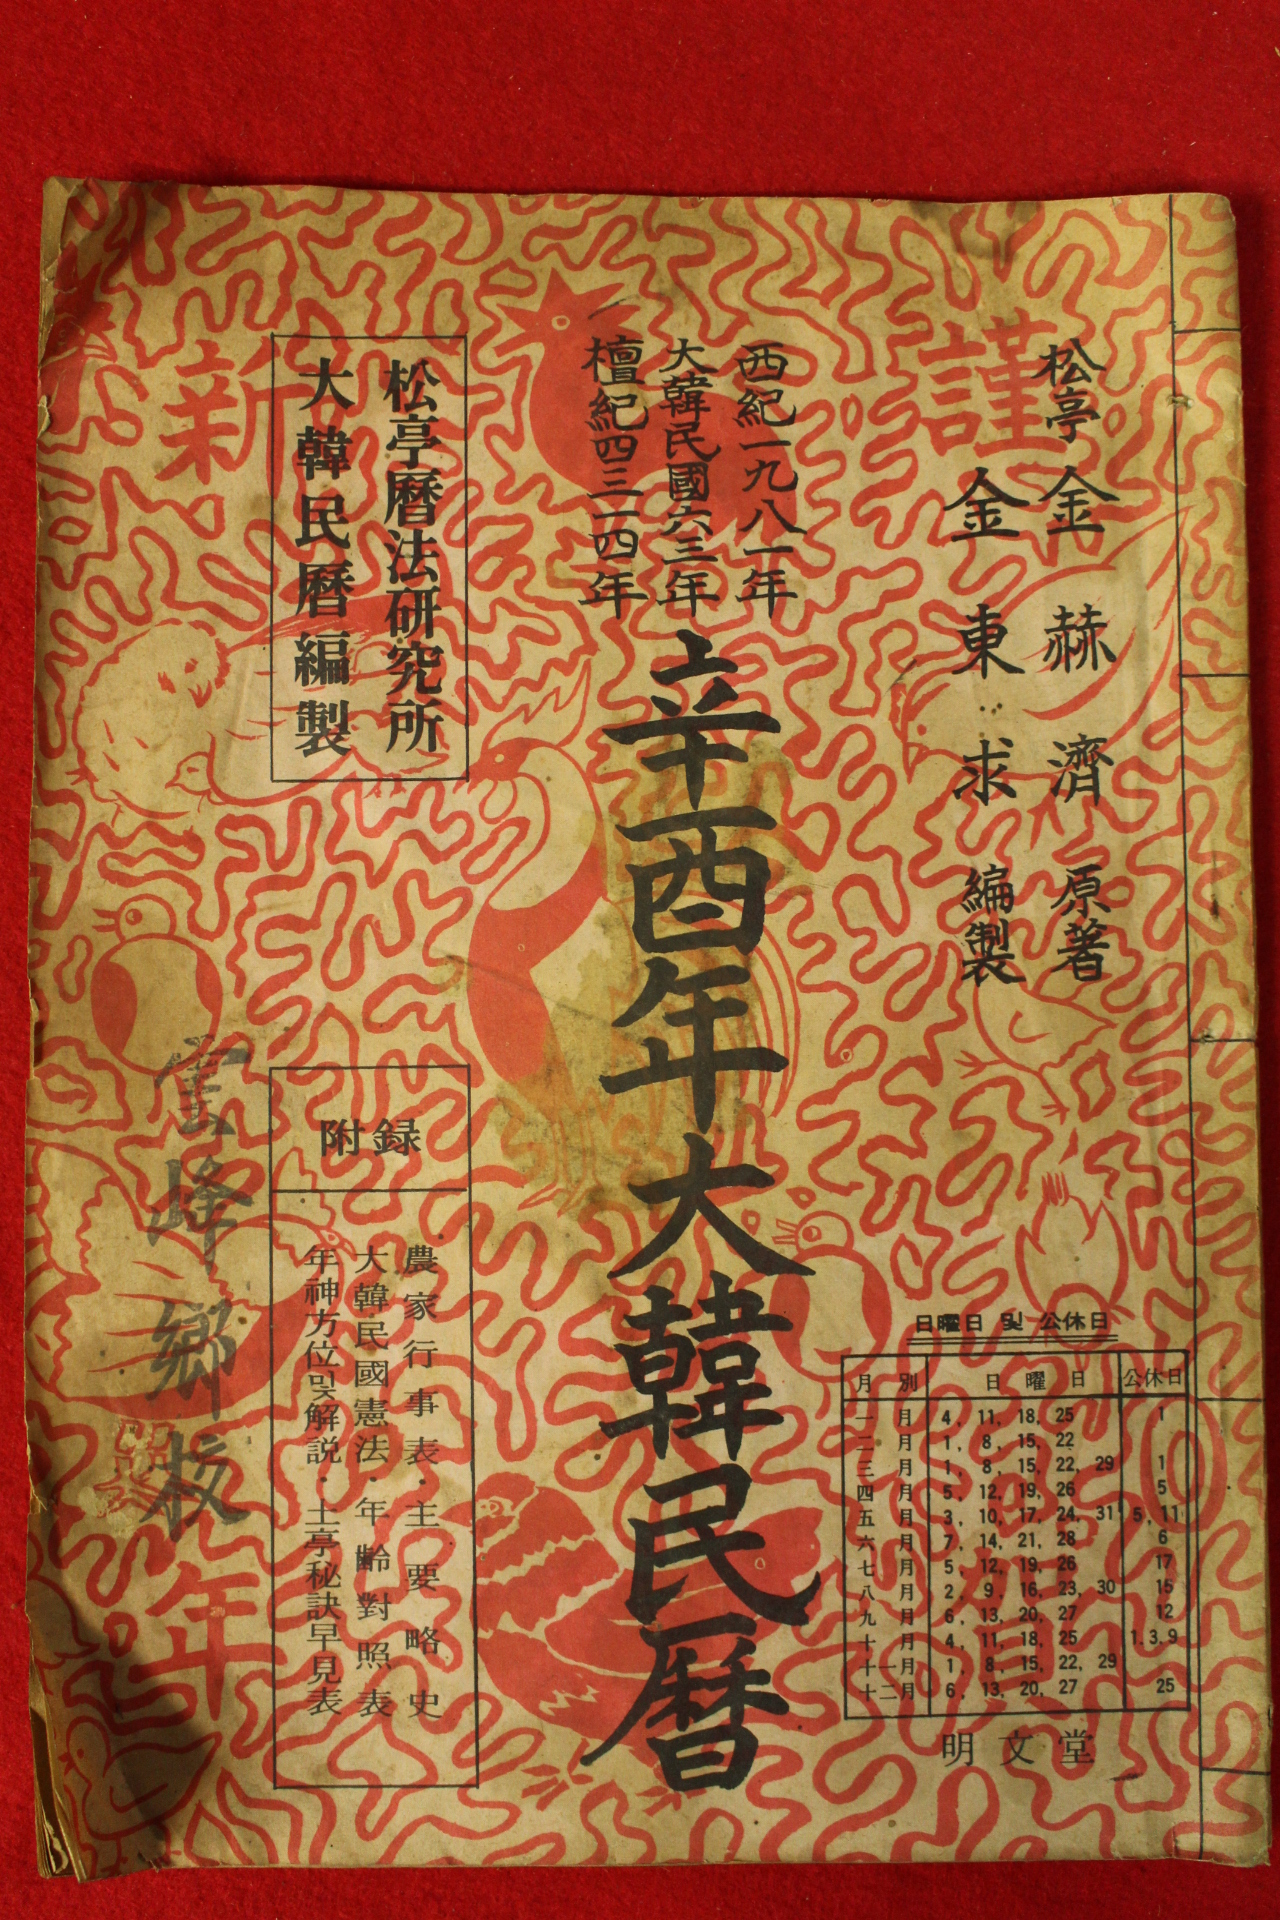 謹
賀
新
年
松亭 金赫濟 原著
金東求 編製
西紀一九八一年
大韓民國六三年
檀紀四三一四年
辛酉年大韓民曆
松亭曆法研究所
大韓民曆編製
附錄
農家行事表·主要略史
大韓民國憲法·年齡對照表
年神方位및解説·土亭秘訣早見表
雲峰鄕校
日曜日 및 公休日
月別 日曜日 公休日
一月 4, 11, 18, 25 1
二月 1, 8, 15, 22
三月 1, 8, 15, 22, 29 1
四月 5, 12, 19, 26 5
五月 3, 10, 17, 24, 31 5, 11
六月 7, 14, 21, 28 6
七月 5, 12, 19, 26 17
八月 2, 9, 16, 23, 30 15
九月 6, 13, 20, 27 12
十月 4, 11, 18, 25 1. 3. 9
十一月 1, 8, 15, 22, 29
十二月 6, 13, 20, 27 25
明文堂